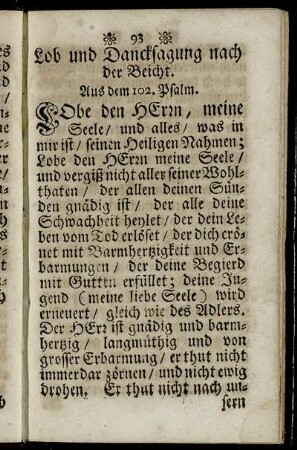 93
Lob und Dancksagung nach
der Beicht.
Aus dem 102. Psalm.
LObe den HErrn, meine
Seele/ und alles/ was in
mir ist/ seinen Heiligen Nahmen;
Lobe den HErrn meine Seele/
und vergiß nicht aller seiner Wohl-
thaten/ der allen deinen Sün-
den gnädig ist/ der alle deine
Schwachheit heylet/ der dein Le-
ben vom Tod erlöset/ der dich crö-
net mit Barmhertzigkeit und Er-
barmungen/ der deine Begierd
mit Guttın erfüllet; deine Ju-
gend (meine liebe Seele) wird
erneuert/ gleich wie des Adlers.
Der HErr ist gnädig und barm-
hertzig/ langmüthig und von
grosser Erbarmung/ er thut nicht
immerdar zörnen/ und nicht ewig
drohen. Er thut nicht nach un-
sern